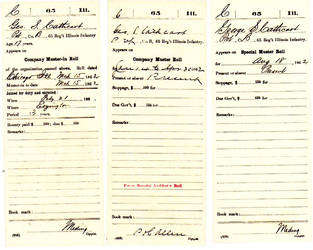 C 65 Ill.
Geo. S. Cathcart
Co. B, 65 Reg't Illinois Infantry.
Age 19 years.
Appears on
Company Muster-in Roll
of the organization named above. Roll dated
Chicago Ills Mch 15, 1862
Muster-in to date Mch 15, 1862
Joined for duty and enrolled:
When 21, 186
Where
Period 3 years.
Bounty paid $ 100; due $ 100
Remarks:
Book mark:
Copyist.
C 65 Ill.
Geo. S. Cathcart
Co. B, 65 Reg't Illinois Infantry.
Appears on
Company Muster Roll
for to Apr 30, 1862
Present or absent Present
Stoppage, $ 100 for
Due Gov't, $ 100 for
Remarks:
Book mark:
Copyist.
C 65 Ill.
George S. Cathcart
Co. B, 65 Reg't Illinois Infantry.
Appears on
Special Muster Roll
for Aug 18, 1862
Present or absent Present
Stoppage, $ 100 for
Due Gov't, $ 100 for
Remarks:
Book mark:
Copyist.